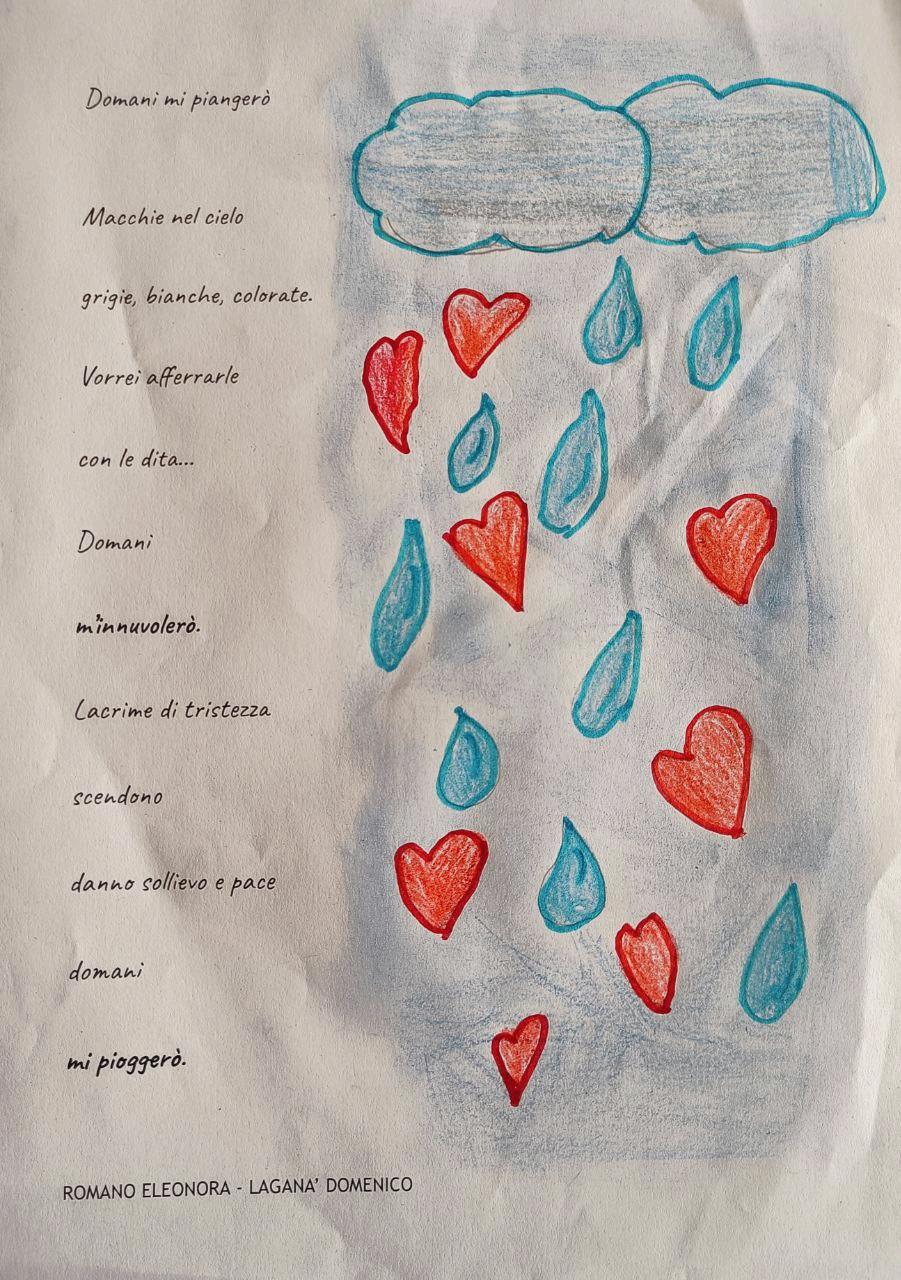 Domani mi piangerò
Macchie nel cielo
grigie, bianche, colorate.
Vorrei afferrarle
con le dita...
Domani
m'innuvolerò.
Lacrime di tristezza
scendono
danno sollievo e pace
domani
mi pioggerò.
ROMANO ELEONORA - LAGANA' DOMENICO